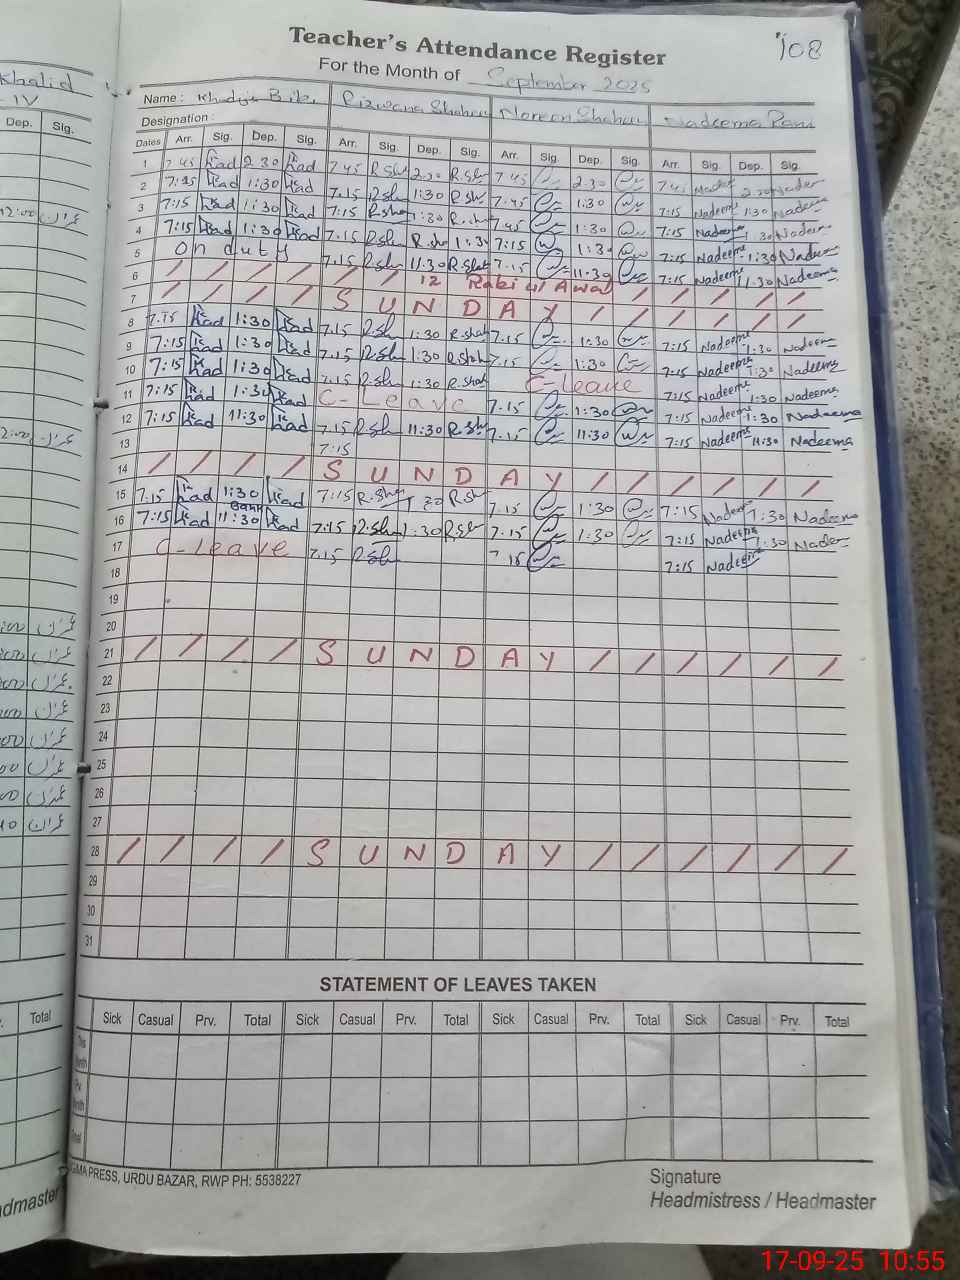 Teacher's Attendance Register
108
For the Month of September 2025
Khalid
- IV
Name : Khadija Bibi Rizwana Shaheen Noreen Shaheen Nadeema Rani
Designation :
Dep. Sig.
Dates Arr. Sig. Dep. Sig. Arr. Sig. Dep. Sig. Arr. Sig. Dep. Sig. Arr. Sig. Dep. Sig.
1 7:45 2:30 7:45 R.Sh 2:30 R.Sh 7:45 2:30 7:45 2:30
2 7:15 1:30 7.15 R.Sh 1:30 R.Sh 7.45 1:30 7:15 Nadeema 1:30 Nadeema
3 7:15 1:30 7:15 R.Sha 1:30 R.Sh 7.45 1:30 7:15 Nadeema 1.30 Nadeem
4 7:15 1:30 7.15 R.Sh R.Sh 1:30 7:15 1:30 7:15 Nadeema 1:30 Nadeema
5 on duty 7.15 R.Sh 11:30 R.Shah 7.15 11:30 7:15 Nadeema 11.30 Nadeema
6 / / / / / / 12 Rabi ul Awal / / / / /
7 / / / / S U N D A Y / / / / / /
8 7.15 1:30 7.15 R.Sh 1:30 R.Shah 7.15 1:30 7:15 Nadeema 1:30 Nadeem
9 7:15 1:30 7.15 R.Sh 1:30 R.Shah 7.15 1:30 7:15 Nadeema 1:30 Nadeema
10 7:15 1:30 7.15 R.Sh 1:30 R.Shah C-leave 7:15 Nadeema 1:30 Nadeema
11 7:15 1:30 C-Leave 7.15 1:30 7:15 Nadeema 1:30 Nadeema
12 7:15 11:30 7.15 R.Sh 11:30 R.Sh 7.15 11:30 7:15 Nadeema 11:30 Nadeema
13 7:15
14 / / / / S U N D A Y / / / / / /
15 7.15 1:30 7:15 R.Sha 1:30 R.Sh 7.15 1:30 7:15 Nadeem 1:30 Nadeema
Bank
16 7:15 11:30 7:15 R.Sh 1:30 R.Sh 7.15 1:30 7:15 Nadeema 1:30 Nadeem
17 C-leave 7.15 R.Sh 7.15 7:15 Nadeema
18
19
20
21 / / / / S U N D A Y / / / / / /
22
23
24
25
26
27
28 / / / / S U N D A Y / / / / / /
29
30
31
12:00 عمران
STATEMENT OF LEAVES TAKEN
Total Sick Casual Prv. Total Sick Casual Prv. Total Sick Casual Prv. Total Sick Casual Prv. Total
PRESS, URDU BAZAR, RWP PH: 5538227
Signature
Headmistress / Headmaster
17-09-25 10:55